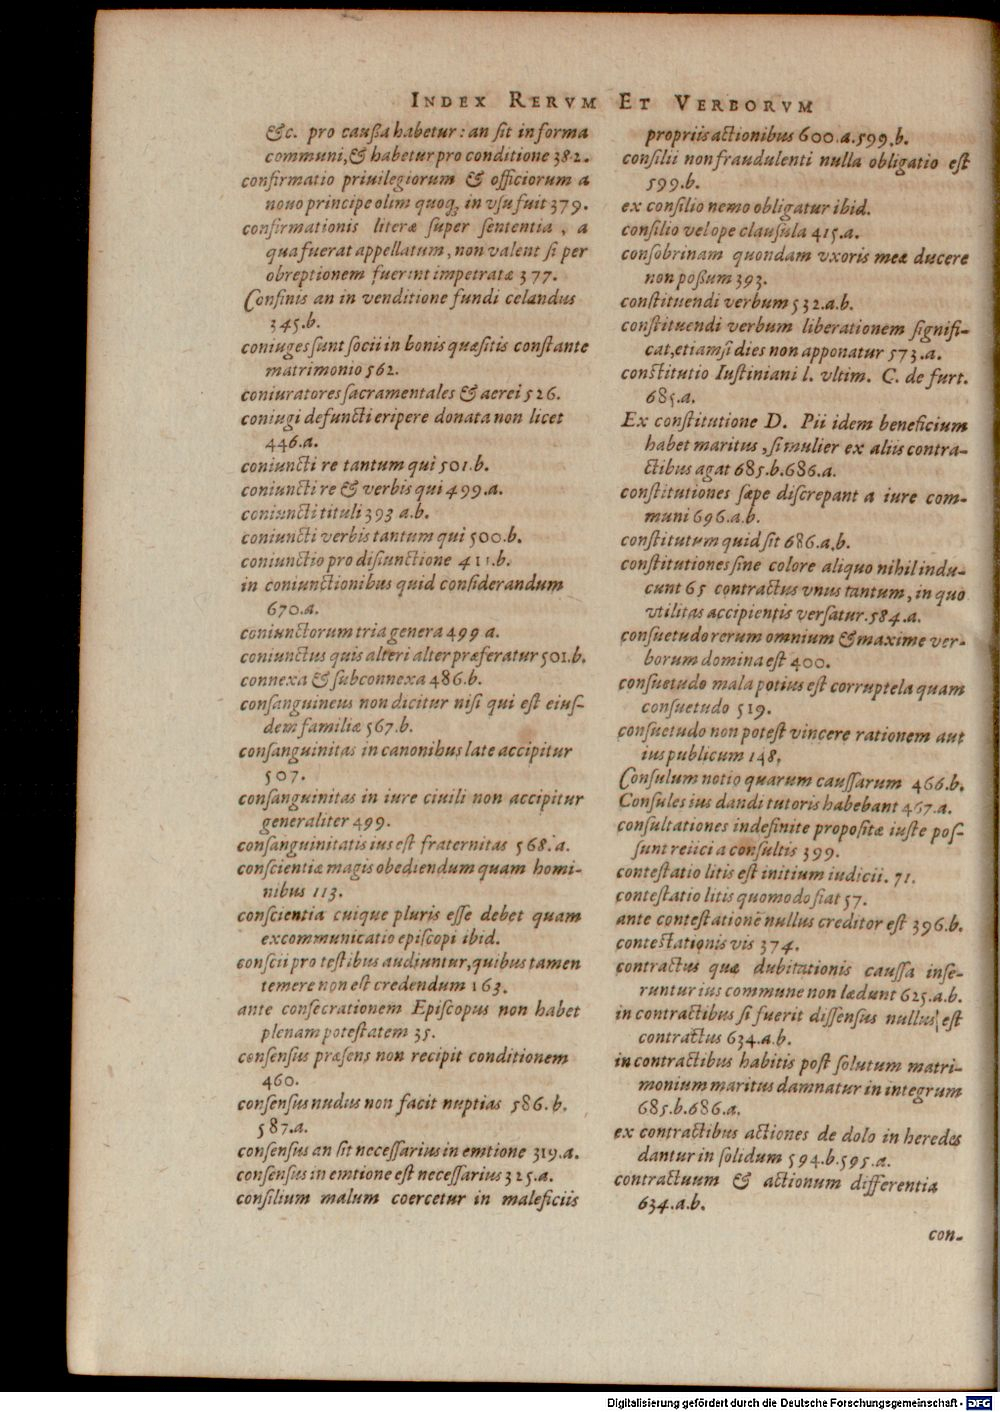 INDEX RERVM ET VERBORVM
&c. pro caußa habetur: an ſit in forma
communi, & habetur pro conditione 382.
confirmatio priuilegiorum & officiorum a
nouo principe olim quoq; in vſu fuit 379.
confirmationis literæ ſuper ſententia, a
qua fuerat appellatum, non valent ſi per
obreptionem fuerint impetratæ 377.
Confinis an in venditione fundi celandus
345.b.
coniuges ſunt ſocii in bonis quæſitis conſtante
matrimonio 562.
coniuratores ſacramentales & aerei 526.
coniugi defuncti eripere donata non licet
446.a.
coniuncti re tantum qui 501.b.
coniuncti re & verbis qui 499.a.
coniuncti tituli 393 a.b.
coniuncti verbis tantum qui 500.b.
coniunctio pro disiunctione 411.b.
in coniunctionibus quid conſiderandum
670.a.
coniunctorum tria genera 499 a.
coniunctus quis alteri alter præferatur 501.b.
connexa & ſubconnexa 486.b.
conſanguineus non dicitur niſi qui eſt eiuſ-
dem familiæ 567.b.
conſanguinitas in canonibus late accipitur
507.
conſanguinitas in iure ciuili non accipitur
generaliter 499.
conſanguinitatis ius eſt fraternitas 568.a.
conſcientiæ magis obediendum quam homi-
nibus 113.
conſcientia cuique pluris eſſe debet quam
excommunicatio epiſcopi ibid.
conſcii pro teſtibus audiuntur, quibus tamen
temere non eſt credendum 163.
ante conſecrationem Epiſcopus non habet
plenam poteſtatem 35.
conſenſus præſens non recipit conditionem
460.
conſenſus nudus non facit nuptias 586.b.
587.a.
conſenſus an ſit neceſſarius in emtione 319.a.
conſenſus in emtione eſt neceſſarius 325.a.
conſilium malum coercetur in maleficiis
propriis actionibus 600.a.599.b.
conſilii non fraudulenti nulla obligatio eſt
599.b.
ex conſilio nemo obligatur ibid.
conſilio vel ope clauſula 415.a.
conſobrinam quondam vxoris meæ ducere
non poßum 393.
conſtituendi verbum 532.a.b.
conſtituendi verbum liberationem ſignifi-
cat, etiamſi dies non apponatur 573.a.
conſtitutio Iuſtiniani l. vltim. C. de furt.
685.a.
Ex conſtitutione D. Pii idem beneficium
habet maritus, ſi mulier ex aliis contra-
ctibus agat 685.b.686.a.
conſtitutiones ſæpe diſcrepant a iure com-
muni 696.a.b.
conſtitutum quid ſit 686.a.b.
conſtitutiones ſine colore aliquo nihil indu-
cunt 65 contractus vnus tantum, in quo
vtilitas accipientis verſatur. 584.a.
conſuetudo rerum omnium & maxime ver-
borum domina eſt 400.
conſuetudo mala potius eſt corruptela quam
conſuetudo 519.
conſuetudo non poteſt vincere rationem aut
ius publicum 148.
Conſulum notio quarum cauſſarum 466.b.
Conſules ius dandi tutoris habebant 467.a.
conſultationes indefinite propoſitæ iuſte poſ-
ſunt reiici a conſultis 399.
conteſtatio litis eſt initium iudicii. 71.
conteſtatio litis quomodo fiat 57.
ante conteſtationē nullus creditor eſt 396.b.
conteſtationis vis 374.
contractus quæ dubitationis cauſſa inſe-
runtur ius commune non lædunt 625.a.b.
in contractibus ſi fuerit diſſenſus nullus eſt
contractus 634.a.b.
in contractibus habitis poſt ſolutum matri-
monium maritus damnatur in integrum
685.b.686.a.
ex contractibus actiones de dolo in heredes
dantur in ſolidum 594.b.595.a.
contractuum & actionum differentia
634.a.b.
con-
Digitalisierung gefördert durch die Deutsche Forschungsgemeinschaft - DFG